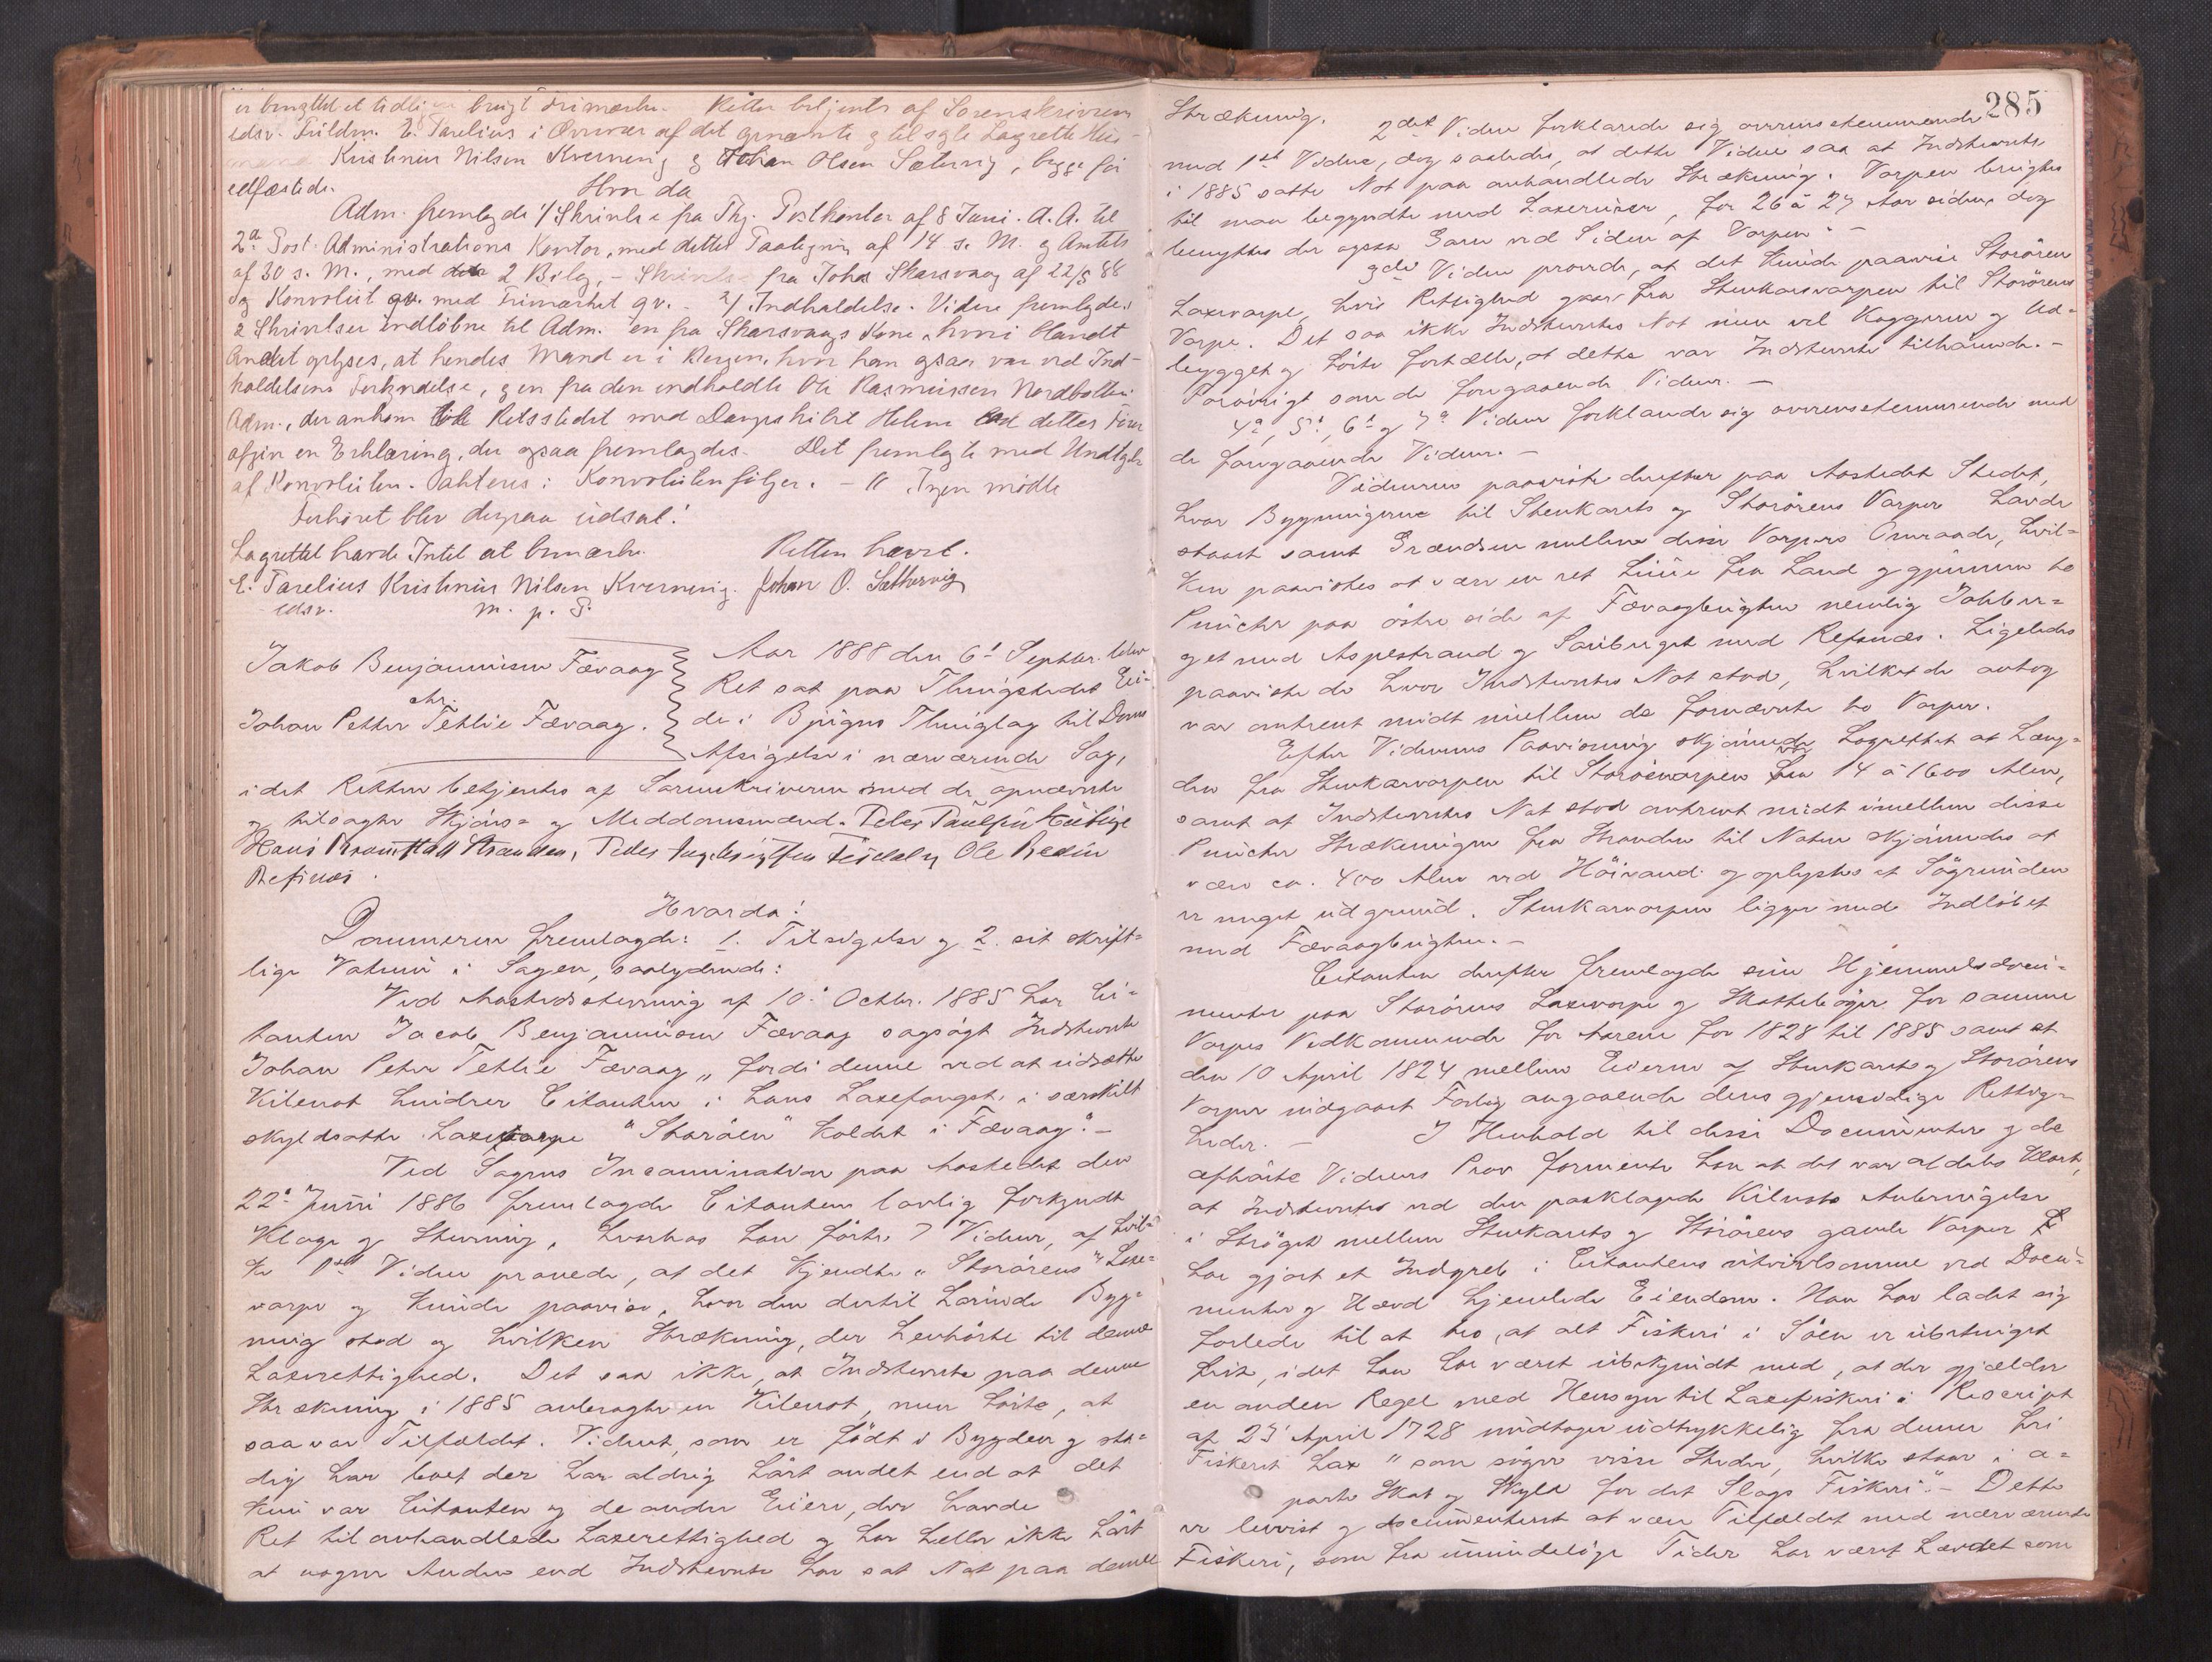 er benyttet et tidligere brugt Frimærke. Retten betjentes af Sorenskriveren
edsv. Fuldm. E. Parelius i Overvær af det opnævnte og tilsagte Lagrette Hus-
mænd Kristinius Nilsen Kvernevig og Johan Olsen Sætervig, begge før
edfæstede.
Hvor da
Adm. fremlagde 1/ Skrivelse fra Thj. Postkontor af 8 Juni d. A. til
2a Post-Administrations Kontor, med dettes Paategning af 14 s. M. og Amtets
af 30 s. M., med 2 Bilag, - Skrivelse fra Johs Skarsvaag af 22/5 88
og Konvolut qv. med Frimærket qv. - 2/ Indkaldelse. Videre fremlagdes
2 Skrivelser indløbne til Adm. en fra Skarsvaags Kone, hvori blandt
Andet oplyses, at hendes Mand er i Bergen, hvor han ogsaa var ved Ind-
kaldelsens Forkyndelse, og en fra den indkaldte Ole Rasmussen Nordbotten
Adm., der ankom til Retsstedet med Dampskibet
afgav en Erklæring, der ogsaa fremlagdes. Det fremlagte med Undtagelse
af Konvoluten. akteres: Konvoluten følger. - " Ingen mødte
Forhøret blev derpaa udsat!
Lagrettet havde Intet at bemærke. Retten hævet.
E. Parelius Kristinius Nilsen Kvernevig. Johan O. Sæthervig
edsv. m. p. P.
Jakob Benjaminsen Fævaag
ctr.
Johan Petter Tetlie Fævaag.
Aar 1888 den 6te Septbr. blev
Ret sat paa Thingstedet Ei-
de i Bjugns Thinglag til Doms
Afsigelse i nærværende Sag,
idet Retten betjentes af Sorenskriveren med de opnævnte
og tilsagte Skjøns- og Meddomsmænd. Peter Paulsen
Hans Stranden, Peder Ole
Refsnæs.
Hvorda!
Dommeren fremlagde: 1. Tilsigelse og 2. sit skrift-
lige Votum i Sagen, saalydende:
Ved Aastedsstevning af 10de Octbr. 1885 har Ci-
tanten Jacob Benjaminsen Fævaag sagsøgt Indstevnte
Johan Peter Tetlie Fævaag „fordi denne ved at udsætte
Kilenot hindrer Citanten i hans Laxefangst i særskilt
skyldsatte Laxevarpe "Storøren" kaldet i Fævaag". -
Ved Sagens Incamination paa Aastedet den
22de Juni 1886 fremlagde Citanten lovlig forkyndt
Klage og Stevning, hvorhos han førte 7 Vidner, af hvil-
ke 1ste Vidne provede, at det kjendte „Storørens" Laxe-
varpe og kunde paavise, hvor den dertil hørende Byg-
ning stod og hvilken Strækning, der henhørte til denne
Laxerettighed. Det saa ikke, at Indstevnte paa denne
Strækning i 1885 anbragte en Kilenot, men hørte, at
saa var Tilfældet. Vidnet, som er født i Bygden og sta-
dig har boet der har aldrig hørt andet end at det
kun var Citanten og de andre Eiere, der havde
Ret til omhandlede Laxerettighed og har heller ikke hørt
at nogen Anden end Indstevnte har sat Not paa denne
285
Strækning. 2det Vidne forklarede sig overensstemmende
med 1ste Vidne, dog saaledes, at dette Vidne saa at Indstevnte
i 1885 satte Not paa omhandlede Strækning. Varpen brugtes
til man begyndte med Laxeruser, for 26 à 27 Aar siden, dog
benyttes der ogsaa Garn ved Siden af Varpen. -
3die Vidne provede, at det kunde paavise Storøren
Laxevarpe, hvis Rettighed gaar fra Stenkarsvarpen til Storørens
Varpe. Det saa ikke Indstevntes Not men vel Kaggerne og Ud-
legget og hørte fortælle, at dette var Indstevnte tilhørende. -
Forøvrigt som de foregaaende Vidner. -
4de, 5te, 6te og 7de Vidne forklarede sig overensstemmende med
de foregaaende Vidner. -
Vidnerne paaviste derefter paa Aastedet Stedet,
hvor Bygningerne til Stenkarets og Storørens Varper havde
staaet samt Grændsen mellem disse Varpers Omraade, hvil-
ken paavistes at være en ret Linie fra Land og gjennem to
Puncter paa østre side af Fævaagbugten nemlig
og et med Aspestrand og Sauberget med Refsnæs. Ligeledes
paaviste de hvor Indstevntes Not stod, hvilket de antog
var omtrent midt mellem de fornævnte to Varper.
Efter Vidnernes Paavisning skjønnede Lagrettet at Læng-
den fra Stenkarvarpen til Storørvarpen var 14 à 1600 Alen,
samt at Indstevntes Not stod omtrent midt imellem disse
Puncter Strækningen fra Stranden til Noten skjønnedes at
være ca. 400 Alen ved Høivand og oplystes at Søgrunden
er meget udgrund. Stenkarvarpen ligger med Indløbet
med Fævaagbugten. -
Citanten derefter fremlagde sine Hjemmelsdocu-
menter paa Storørens Laxevarpe og Skattebøger for samme
Varpes Vedkommende for Aarene for 1828 til 1885 samt et
den 10 April 1824 mellem Eierne af Stenkarets og Storørens
Varper indgaaet Forlig angaaende deres gjensidige Rettig-
heder. - I Henhold til disse Documenter og de
afhørte Vidners Prov formente han at det var aldeles klart,
at Indstevntes ved den paaklagede Kilenots Anbringelse
i Strøget mellem Stenkarets og Storørens gamle Varper
har gjort et Indgreb i Citantens utvivlsomme ved Docu-
menter og Hævd hjemlede Eiendom. Han har ladet sig
forlede til at tro, at alt Fiskeri i Søen er ubetinget
frit, idet han har været ubekjendt med, at der gjælder
en anden Regel med Hensyn til Laxefiskeri i Rescript
af 23 April 1728 undtages udtrykkelig fra denne fri
Fiskeret Lax "som søger visse Steder, hvilke staar i a-
parte Skat og Skyld for det Slags Fiskeri". - Dette
er bevist og documenteret at være Tilfældet med nærværende
Fiskeri, som fra umindelige Tider har været hævdet som